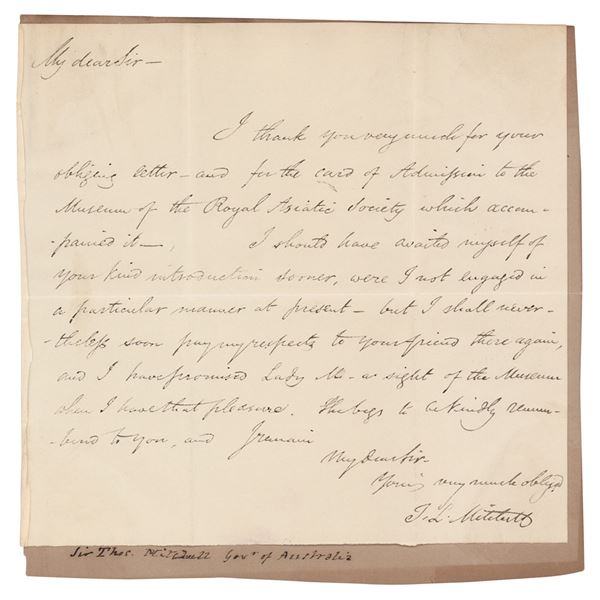 My dear Sir —
I thank you very much for your
obliging letter — and for the card of Admission to the
Museum of the Royal Asiatic Society which accom-
-panied it — , I should have availed myself of
your kind introduction sooner, were I not engaged in
a particular manner at present — but I shall never-
-theless soon pay my respects to your friend there again,
and I have promised Lady M. — a sight of the Museum
when I have that pleasure. She begs to be kindly remem-
-bered to you, and I remain
My Dear Sir
Yours very much obliged
T. L. Mitchell
Sir Thos. Mitchell Govr of Australia